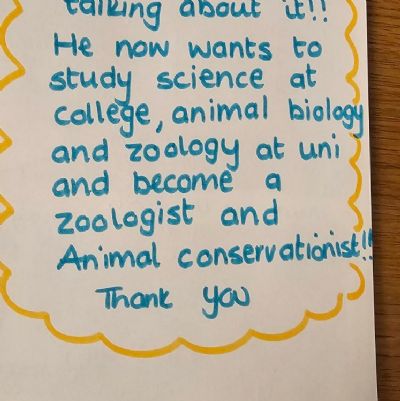 talking about it!!
He now wants to
study science at
college, animal biology
and zoology at uni
and become a
zoologist and
Animal conservationist!!
Thank you